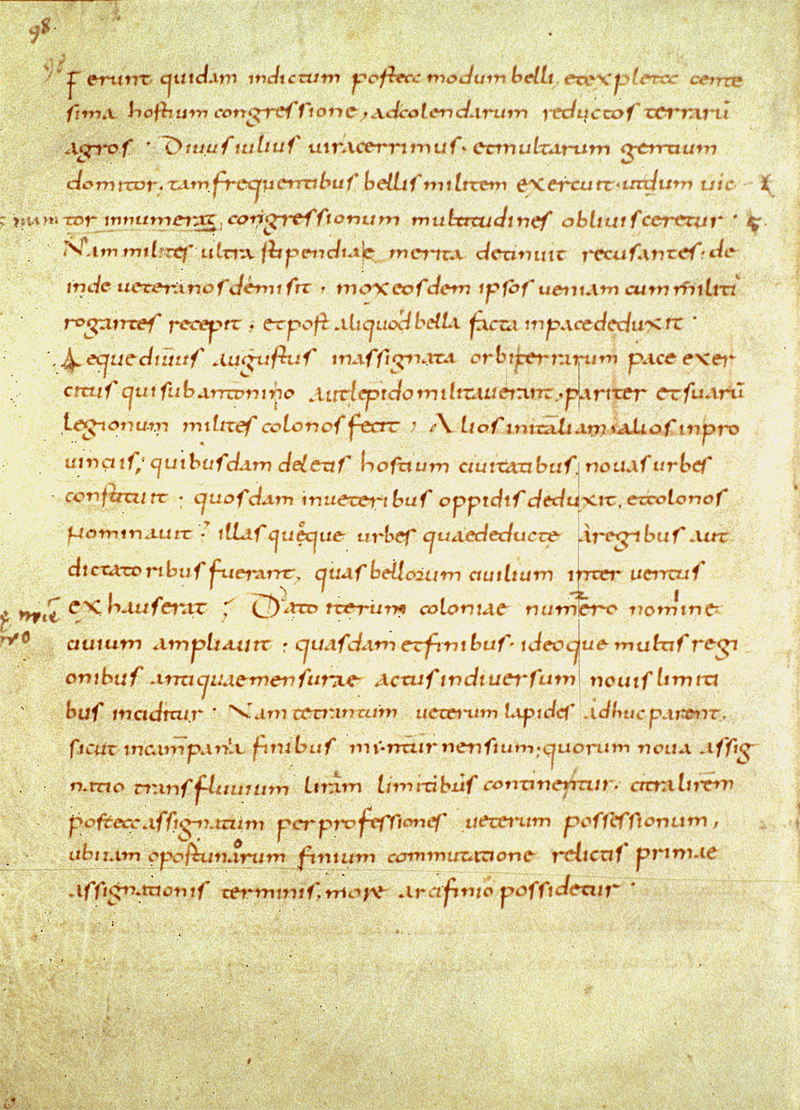 98.
ferunt quidam indictum postea modum belli. et expleta cente
sima hostium congressione, ad colendarum reductos terrarū
agros · Diuus iulius uir acerrimus. et multarum gentium
domitor. tam frequentibus bellis militem exercuit. ut dum uic
tor innumeras congressionum multitudines obliuisceretur ·
Nam milites ultra stipendiae merita detinuit recusantes; de
inde ueteranos demisit · mox eosdem ipsos ueniam cum militi
rogantes recepit, et post aliquod bella facta in pace deduxit ·
Aeque diuus augustus in assignata orbi terrarum pace exer
citus qui sub antonino aut lepido militauerant, pariter et suarū
legionum milites colonos fecit · Alios in italiam. alios in pro
uinciis; quibusdam deletis hostium ciuitatibus, nouas urbes
constituit · quosdam in ueteribus oppidis deduxit, et colonos
Nominauit · illas quoque urbes quae deducte a regibus aut
dictatoribus fuerant, quas bellorum ciuilium inter uentus
exhauserat · Dato iterum coloniae numero nomine
ciuium ampliauit · quasdam et finibus. ideoque multis regi
onibus antiquae mensurae actus in diuersum nouis limiti
bus inciditur · Nam tetrantum ueterum lapides adhuc parent.
sicut in campania finibus minturnensium; quorum noua assig
natio trans fluuium liram limitibus continentur. citra lirem
postea assignatum per professiones ueterum possessionum,
ubi iam oportunarum finium commutatione relictis primae
assignationis terminis. more arcifinio possidetur ·